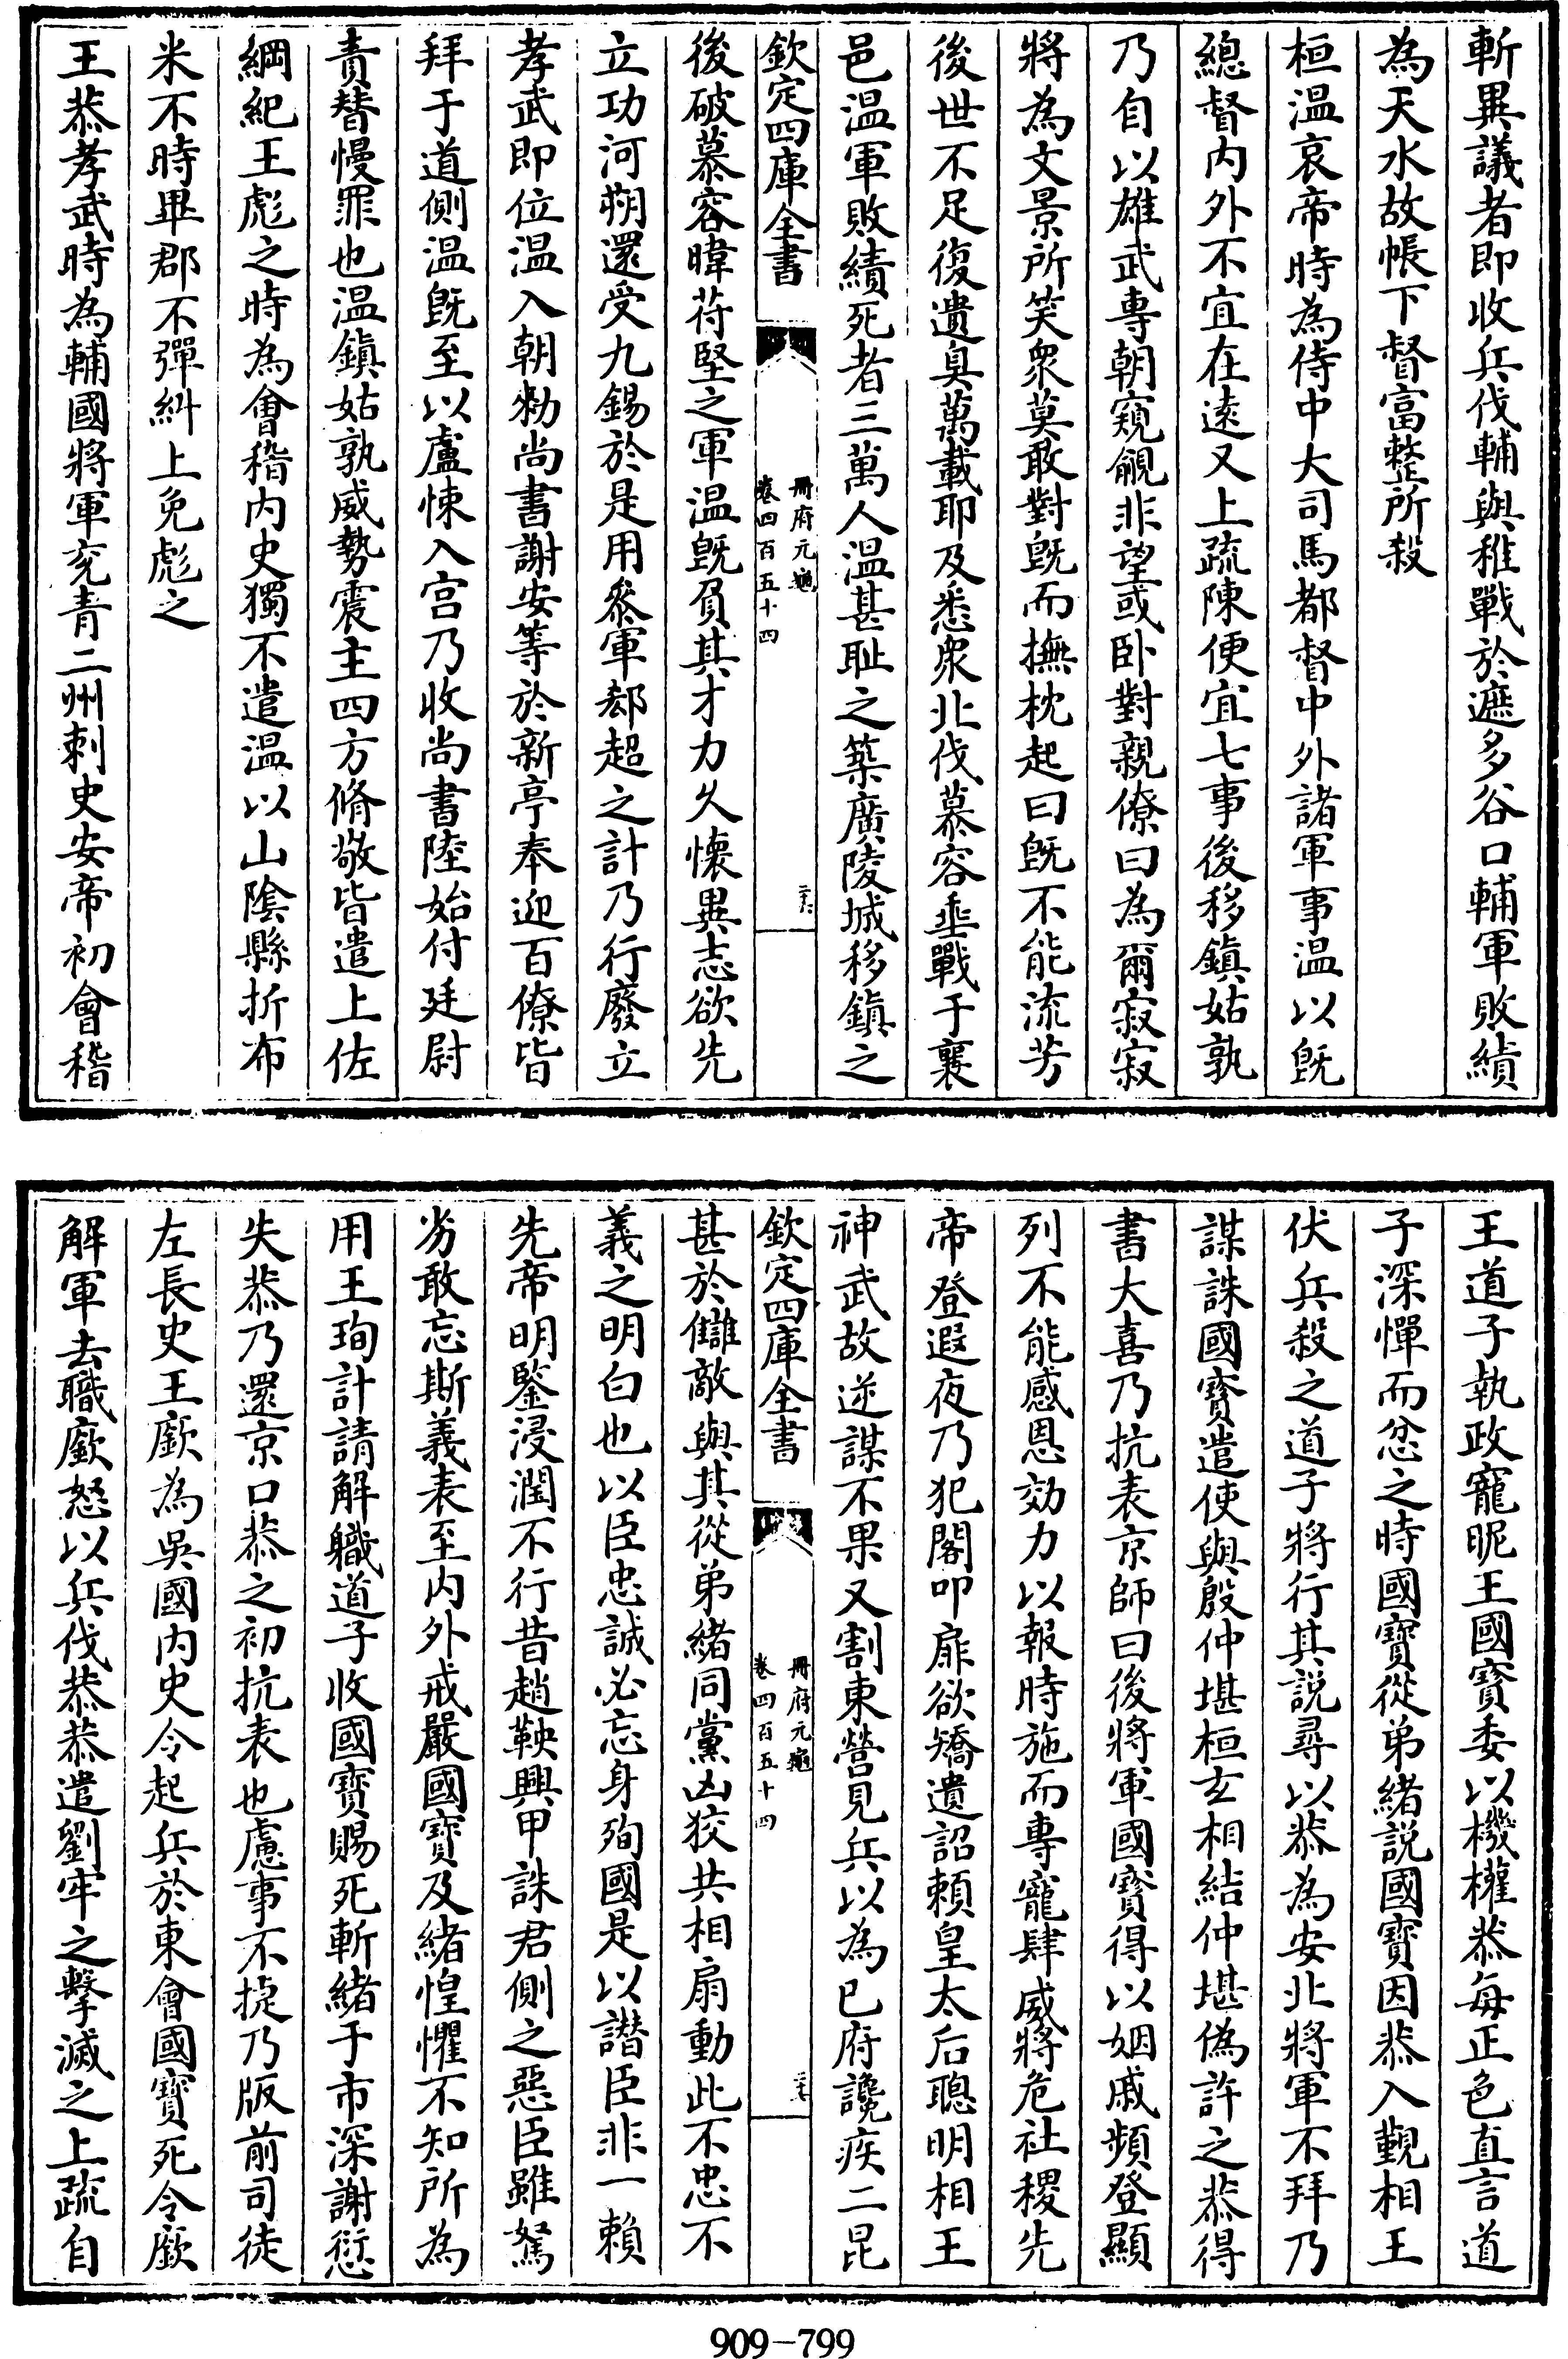 斬異議者即收兵伐輔與稚戰於遮多谷口輔軍敗績
為天水故帳下督富整所殺
桓温哀帝時為侍中大司馬都督中外諸軍事温以既
總督内外不宜在逺又上疏陳便宜七事後移鎮姑孰
乃自以雄武專朝窺覦非望或卧對親僚曰為爾寂寂
將為文景所笑衆莫敢對既而撫枕起曰既不能流芳
後世不足復遺臭萬載耶及悉衆北伐慕容垂戰于襄
邑温軍敗績死者三萬人温甚耻之築廣陵城移鎮之
欽定四庫全書
冊府元龜
卷四百五十四
二十六
後破慕容暐苻堅之軍温既負其才力久懷異志欲先
立功河朔還受九錫於是用叅軍郄超之計乃行廢立
孝武即位温入朝勑尚書謝安等於新亭奉迎百僚皆
拜于道側温既至以盧悚入宫乃收尚書陸始付廷尉
責替慢罪也温鎮姑孰威勢震主四方脩敬皆遣上佐
綱紀王彪之時為㑹稽内史獨不遣温以山隂縣折布
米不時畢郡不彈糾上免彪之
王恭孝武時為輔國將軍兖青二州刺史安帝初會稽
王道子執政寵昵王國寳委以機權恭每正色直言道
子深憚而忿之時國寳從弟緒説國寳因恭入覲相王
伏兵殺之道子將行其説尋以恭為安北將軍不拜乃
謀誅國寳遣使與殷仲堪桓玄相結仲堪偽許之恭得
書大喜乃抗表京師曰後將軍國寳得以姻戚頻登顯
列不能感恩効力以報時施而專寵肆威將危社稷先
帝登遐夜乃犯閤叩扉欲矯遺詔頼皇太后聰明相王
神武故逆謀不果又割東營見兵以為已府讒疾二昆
欽定四庫全書
冊府元龜
卷四百五十四
二十七
甚於讎敵與其從弟緒同黨凶狡共相扇動此不忠不
義之明白也以臣忠誠必忘身殉國是以譛臣非一頼
先帝明鑒浸潤不行昔趙鞅興甲誅君側之惡臣雖駑
劣敢忘斯義表至内外戒嚴國寳及緒惶懼不知所為
用王珣計請解職道子收國寳賜死斬緒于市深謝愆
失恭乃還京口恭之初抗表也慮事不捷乃版前司徒
左長史王廞為吳國内史令起兵於東會國寳死令廞
解軍去職廞怒以兵伐恭恭遣劉牢之擊滅之上疏自
909-799